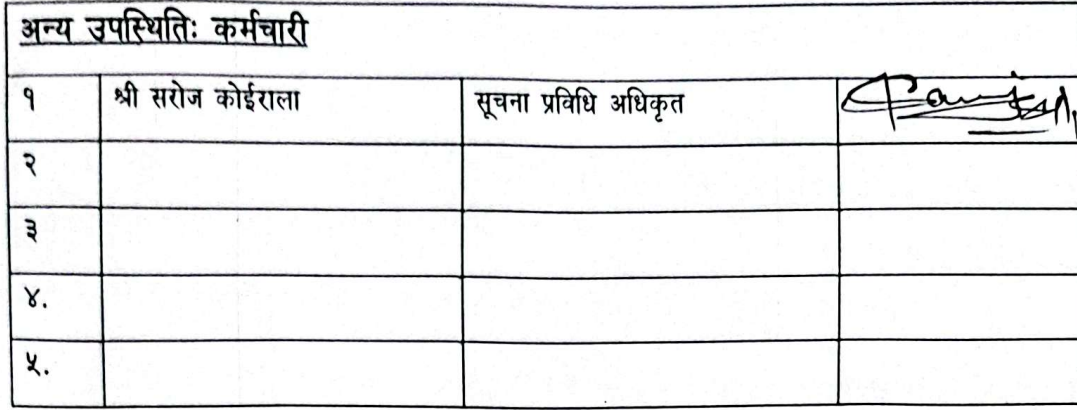 अन्य उपस्थितिः कर्मचारी
१ श्री सरोज कोईराला सूचना प्रविधि अधिकृत
२
३
४.
५.